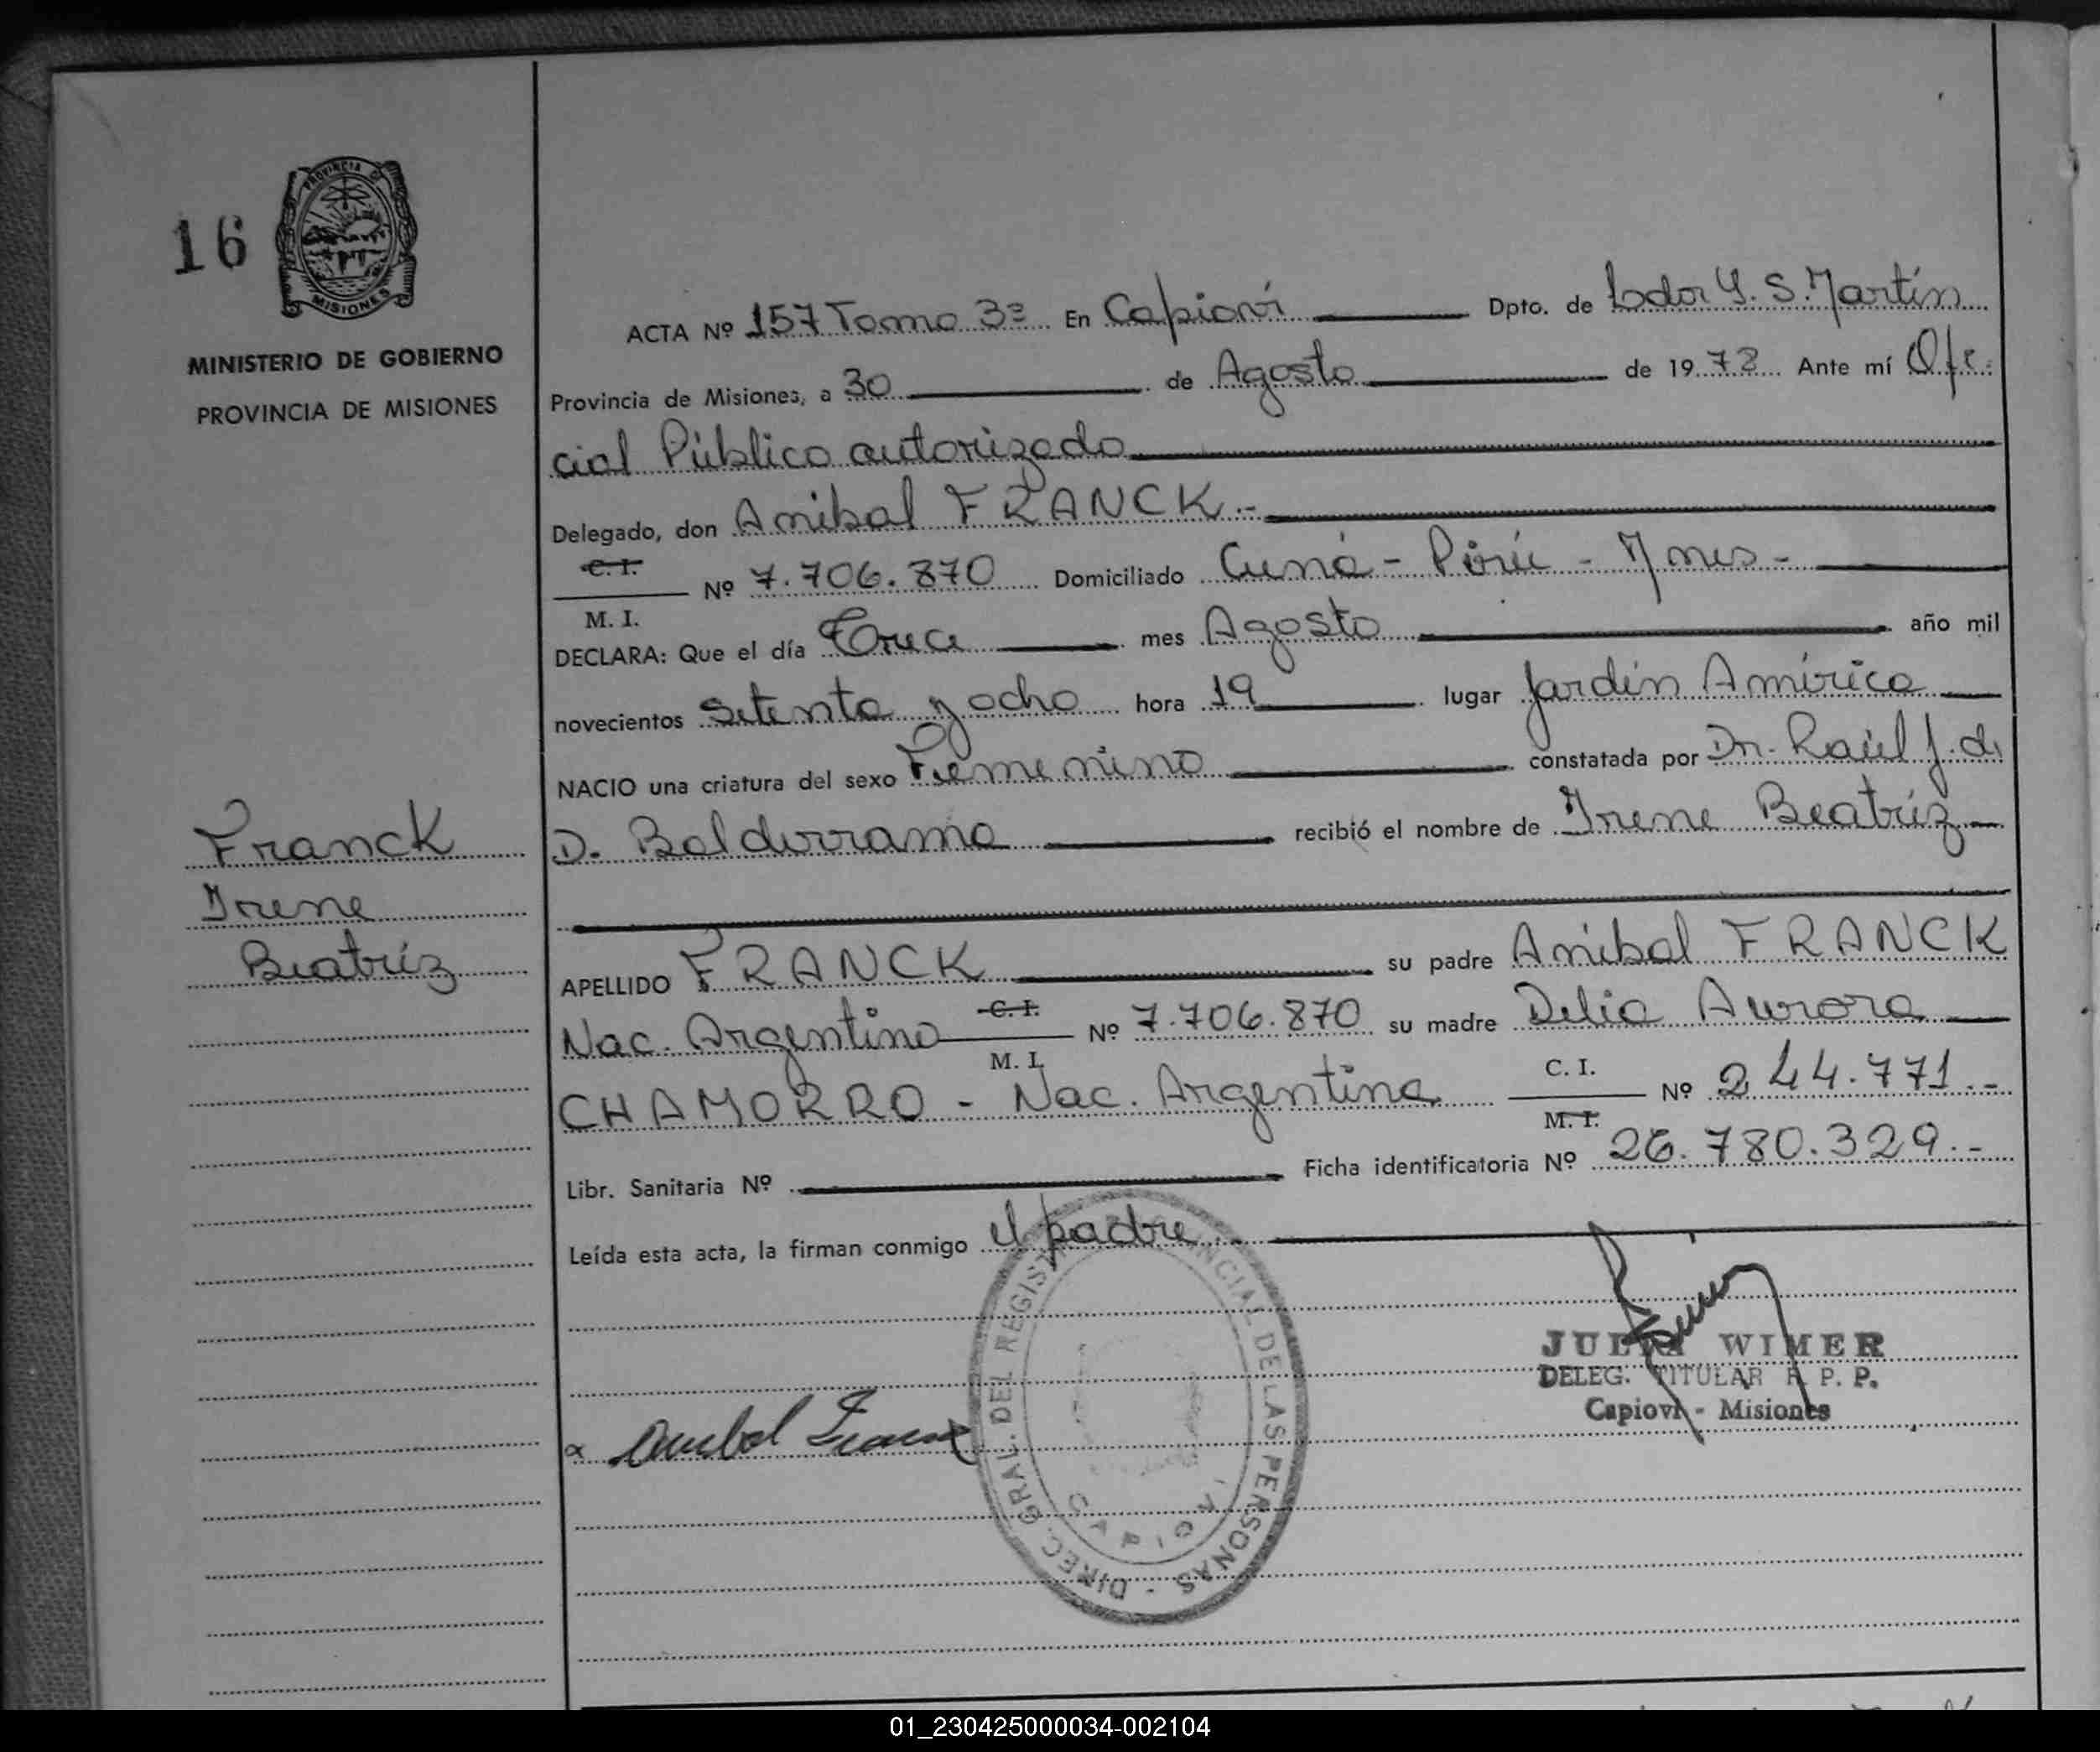 16
PROVINCIA DE
MISIONES
MINISTERIO DE GOBIERNO
PROVINCIA DE MISIONES
Franck
Irene
Beatríz
ACTA Nº 157 Tomo 3º En Capioví Dpto. de Lbdor G. S. Martín
Provincia de Misiones, a 30 de Agosto de 1978 Ante mí Ofi
cial Público autorizado
Delegado, don Anibal FRANCK.-
C. I.
Nº 7.706.870 Domiciliado Cuñá - Pirú - Mnes -
M. I.
DECLARA: Que el día Trece mes Agosto año mil
novecientos setenta y ocho hora 19 lugar Jardín América
NACIO una criatura del sexo Femenino constatada por Dr. Raúl J. d.
D. Balderrama recibió el nombre de Irene Beatríz
APELLIDO FRANCK su padre Anibal FRANCK
Nac. Argentino C. I. Nº 7.706.870 su madre Delia Aurora
M. I.
CHAMORRO - Nac. Argentina C. I. Nº 244.771.-
M. I.
Libr. Sanitaria Nº Ficha identificatoria Nº 26.780.329.-
Leída esta acta, la firman conmigo el padre.-
DIREC. GRAL. DEL REGISTRO PROVINCIAL DE LAS PERSONAS -
CAPIOVI
WIMER
DELEG. TITULAR R. P. P.
Capioví - Misiones
Anibal Franck
01_230425000034-002104